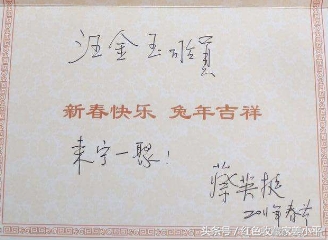 汪金玉雅賞
新春快乐 兔年吉祥
来宁一聚!
蔡英挺
2011年春节
头条号/红色收藏家晏小平